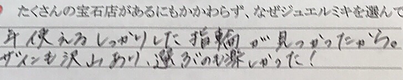 たくさんの宝石店があるにもかかわらず、なぜジュエルミキを選んで
年使えるしっかりした指輪が見つかったから。
ザインも沢山あり、選ぶのも楽しかった!